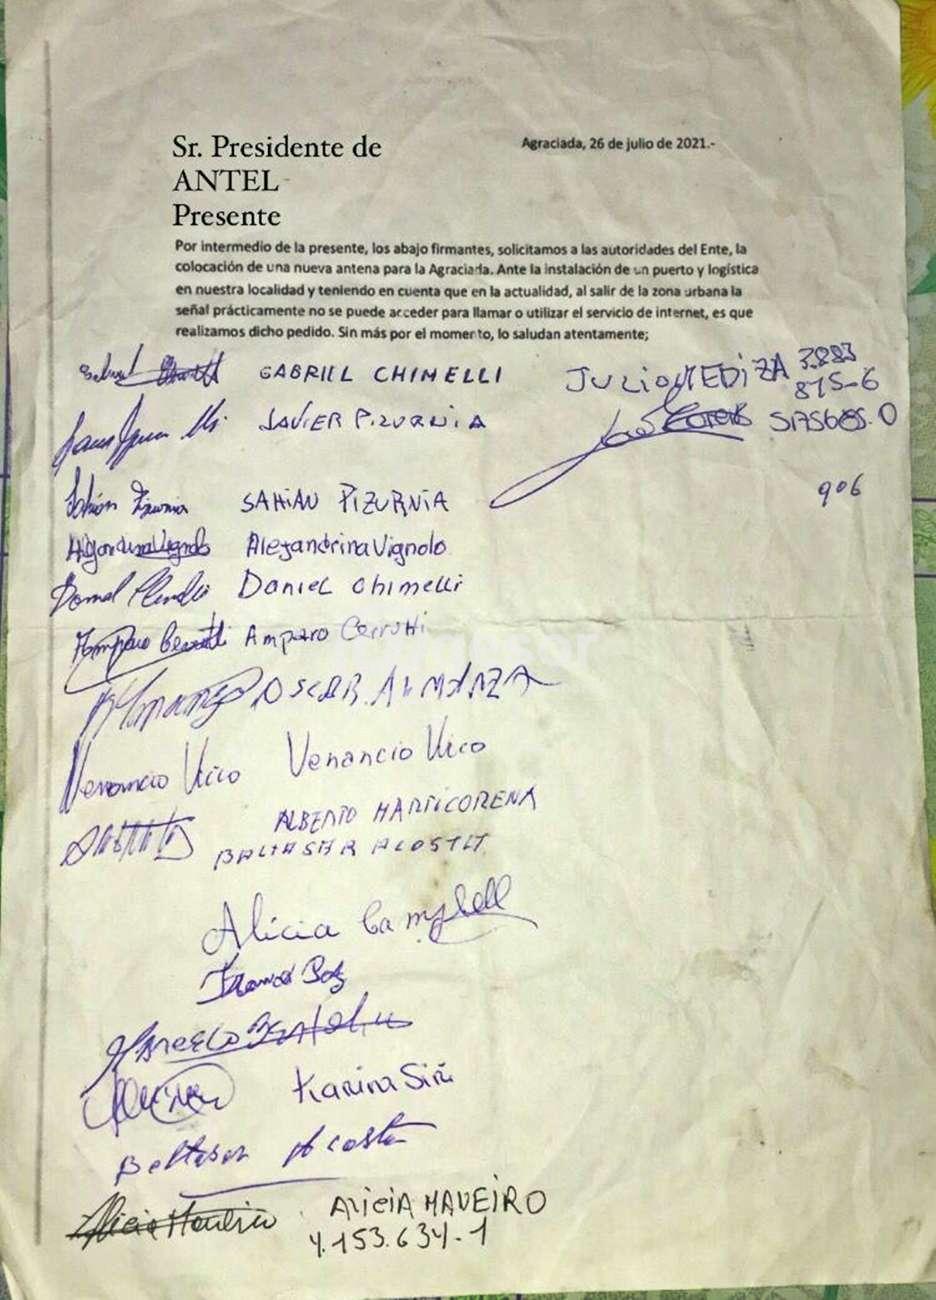 Sr. Presidente de
ANTEL
Presente
Agraciada, 26 de julio de 2021.-
Por intermedio de la presente, los abajo firmantes, solicitamos a las autoridades del Ente, la
colocación de una nueva antena para la Agraciada. Ante la instalación de un puerto y logística
en nuestra localidad y teniendo en cuenta que en la actualidad, al salir de la zona urbana la
señal prácticamente no se puede acceder para llamar o utilizar el servicio de internet, es que
realizamos dicho pedido. Sin más por el momento, lo saludan atentamente;
GABRIEL CHIMELLI
JULIO MEDIZA 3883
815-6
JAVIER PIZURNIA
906
SAHIAN PIZURNIA
Alejandrina Vignolo
Daniel Chimelli
Amparo Cerrutti
OSCAR ALMANZA
Venancio Vico Venancio Vico
ALBERTO MARTICORENA
BALTASAR ACOSTA
Alicia Campbell
Karina Siri
Baltasar Acosta
ALICIA MANEIRO
4.153.634-1